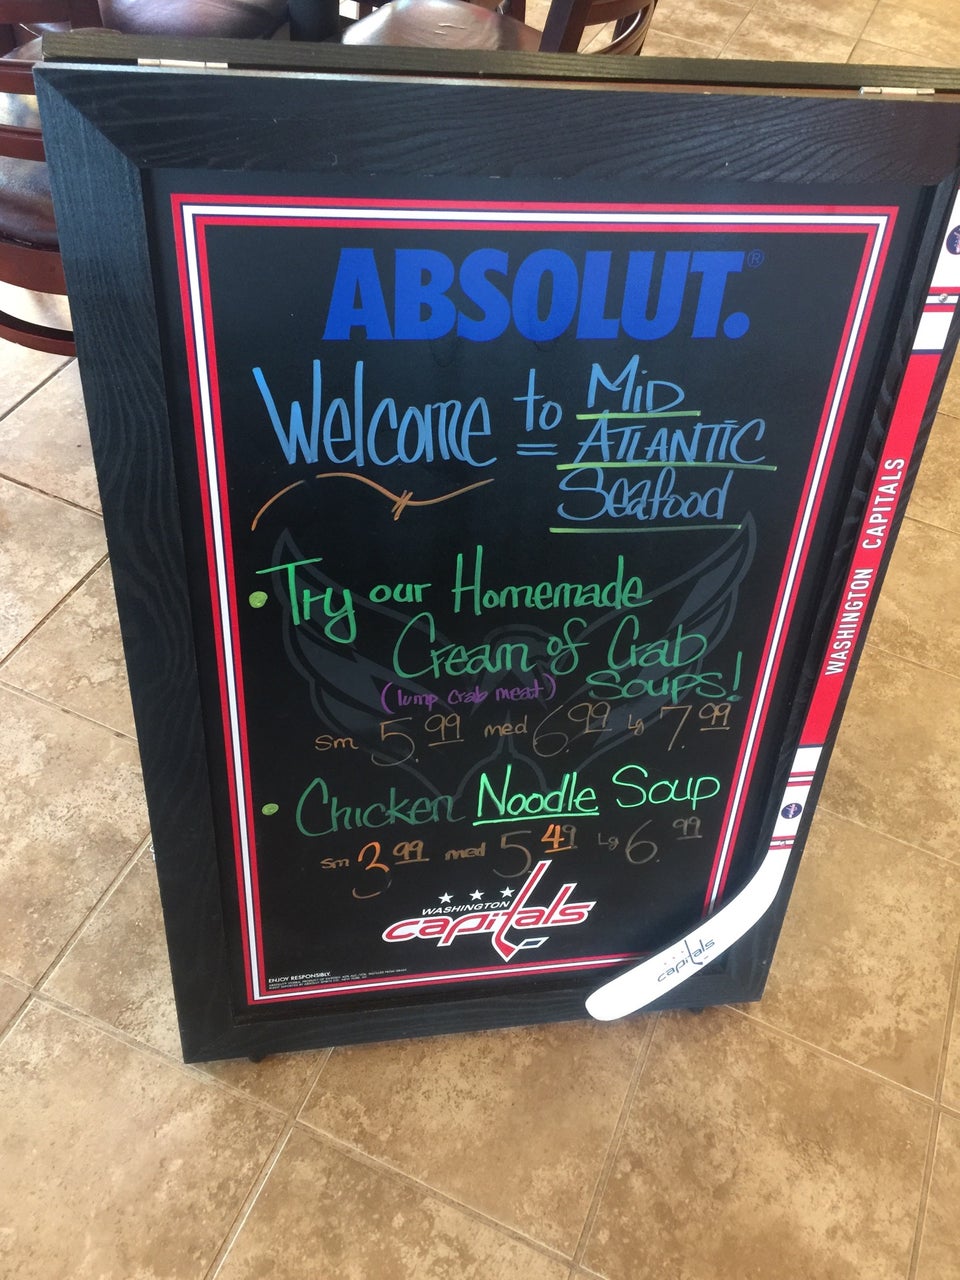 ABSOLUT.®
Welcome to Mid
Atlantic
Seafood
• Try our Homemade
Cream of Crab
(lump crab meat) Soups!
sm 5.99 med 6.99 Lg 7.99
• Chicken Noodle Soup
sm 3.99 med 5.49 Lg 6.99
WASHINGTON
capitals
ENJOY RESPONSIBLY.
WASHINGTON CAPITALS
capitals